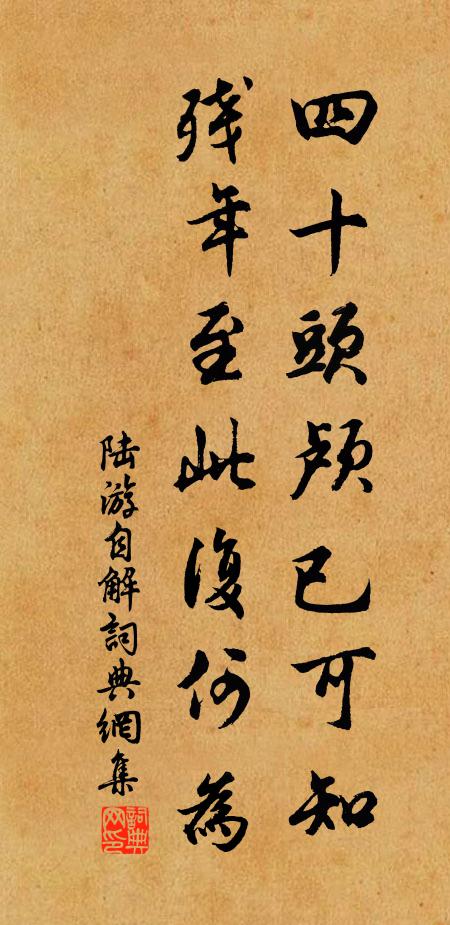 四十頭顱已可知
殘年至此復何為
陸游自解詞典網集
詞典網印